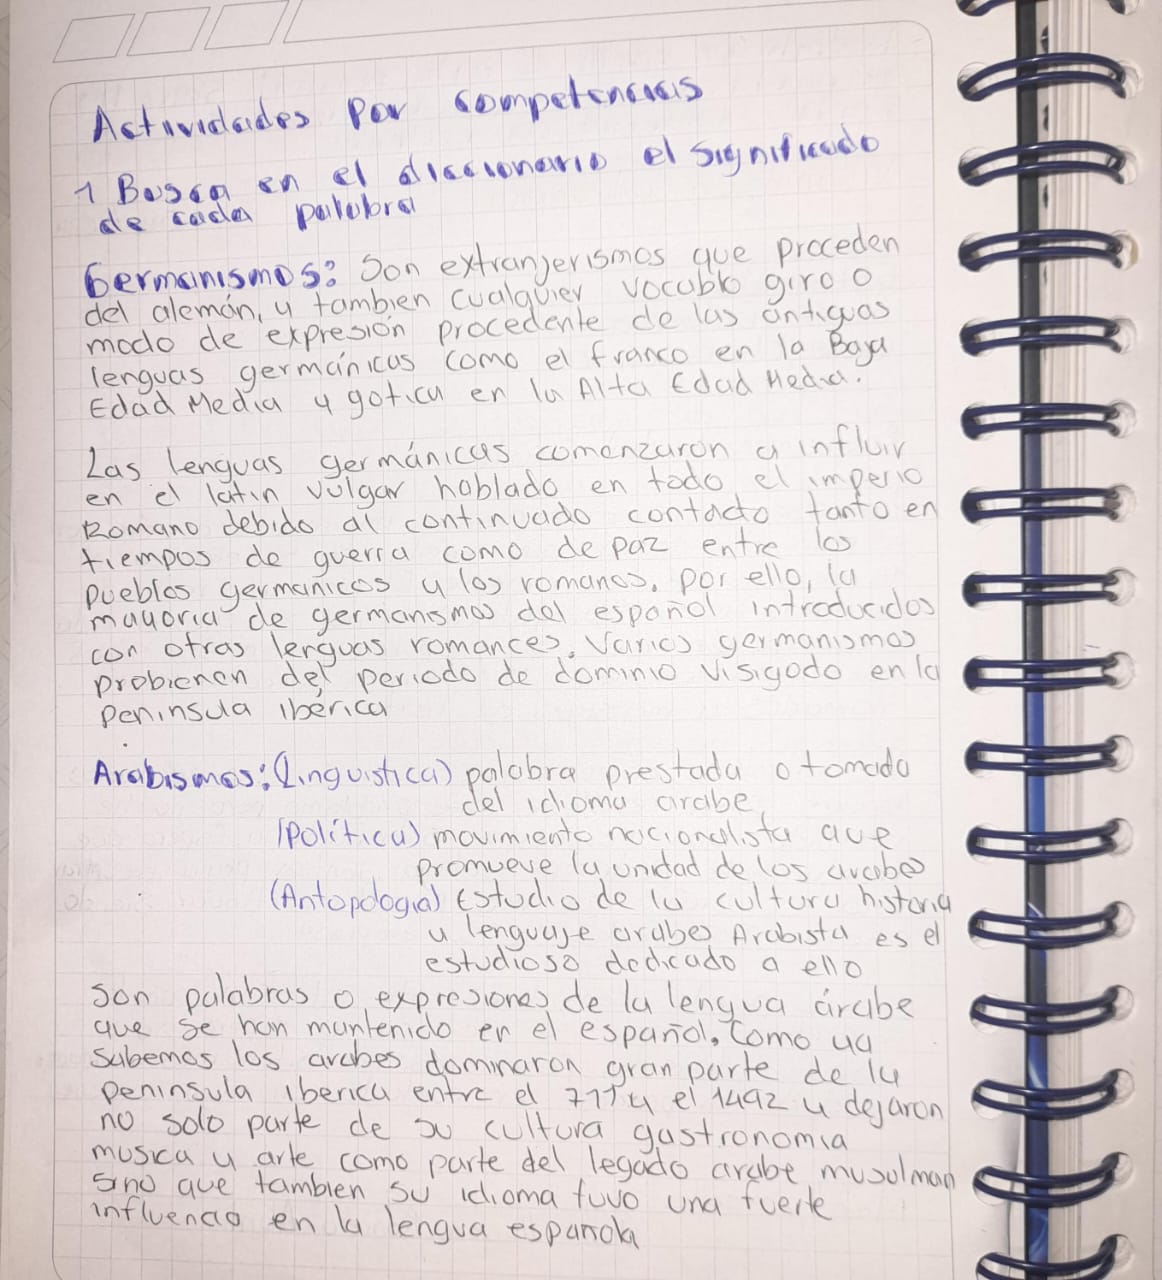 Actividades por competencias
1 Busca en el diccionario el significado
de cada palabra
Germanismos: Son extranjerismos que proceden
del alemán, y tambien cualquier vocablo giro o
modo de expresión procedente de las antiguas
lenguas germánicas como el franco en la Baja
Edad Media y gotica en la Alta Edad Media.
Las lenguas germánicas comenzaron a influir
en el latin vulgar hablado en todo el imperio
Romano debido al continuado contacto tanto en
tiempos de guerra como de paz entre los
pueblos germanicos y los romanos, por ello, la
mayoria de germanismos del español introducidos
con otras lenguas romances. Varios germanismos
probienen del periodo de dominio visigodo en la
peninsula ibérica
Arabismos: (Linguistica) palabra prestada o tomada
del idioma arabe
(política) movimiento nacionalista que
promueve la unidad de los arabes
(Antopologia) Estudio de la cultura historia
y lenguaje arabes Arabista es el
estudioso dedicado a ello
son palabras o expresiones de la lengua árabe
que se han mantenido en el español. Como ya
sabemos los arabes dominaron gran parte de la
peninsula iberica entre el 711 y el 1492 y dejaron
no solo parte de su cultura gastronomia
musica y arte como parte del legado arabe musulman
sino que tambien su idioma tuvo una fuerte
influencia en la lengua española